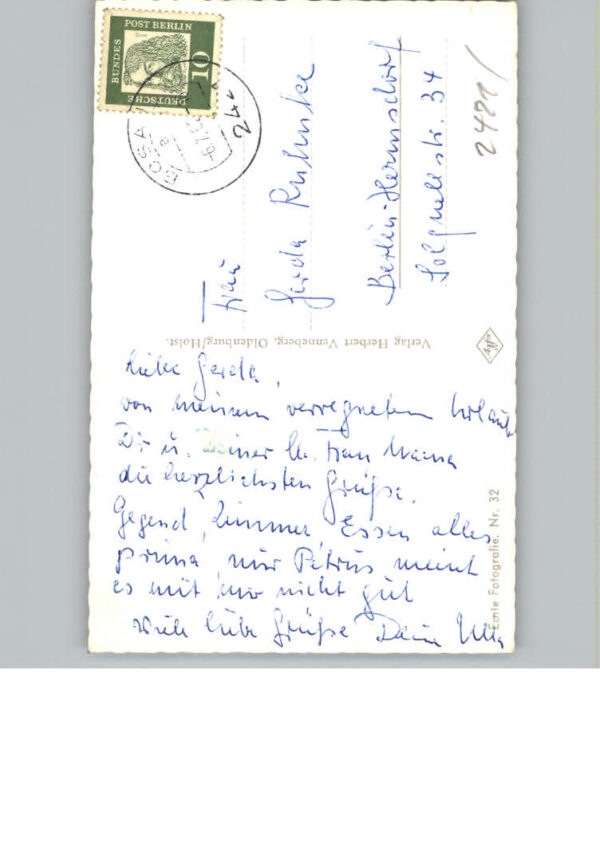 DEUTSCHE
BUNDES
POST BERLIN
10
Dürer
24
2421/
Frau
Gerda
Berlin-Hermsdorf
Solquellstr. 34
Verlag Herbert Venneberg, Oldenburg/Holst.
Agfa
Echte Fotografie. Nr. 32
Liebe Gerda,
von meinem verregneten Urlaub
Dir u. Deiner lb. Frau Mama
die herzlichsten Grüße.
Gegend, Zimmer, Essen alles
prima, nur Petrus meint
es mit nicht gut
Viele liebe Grüße Deine